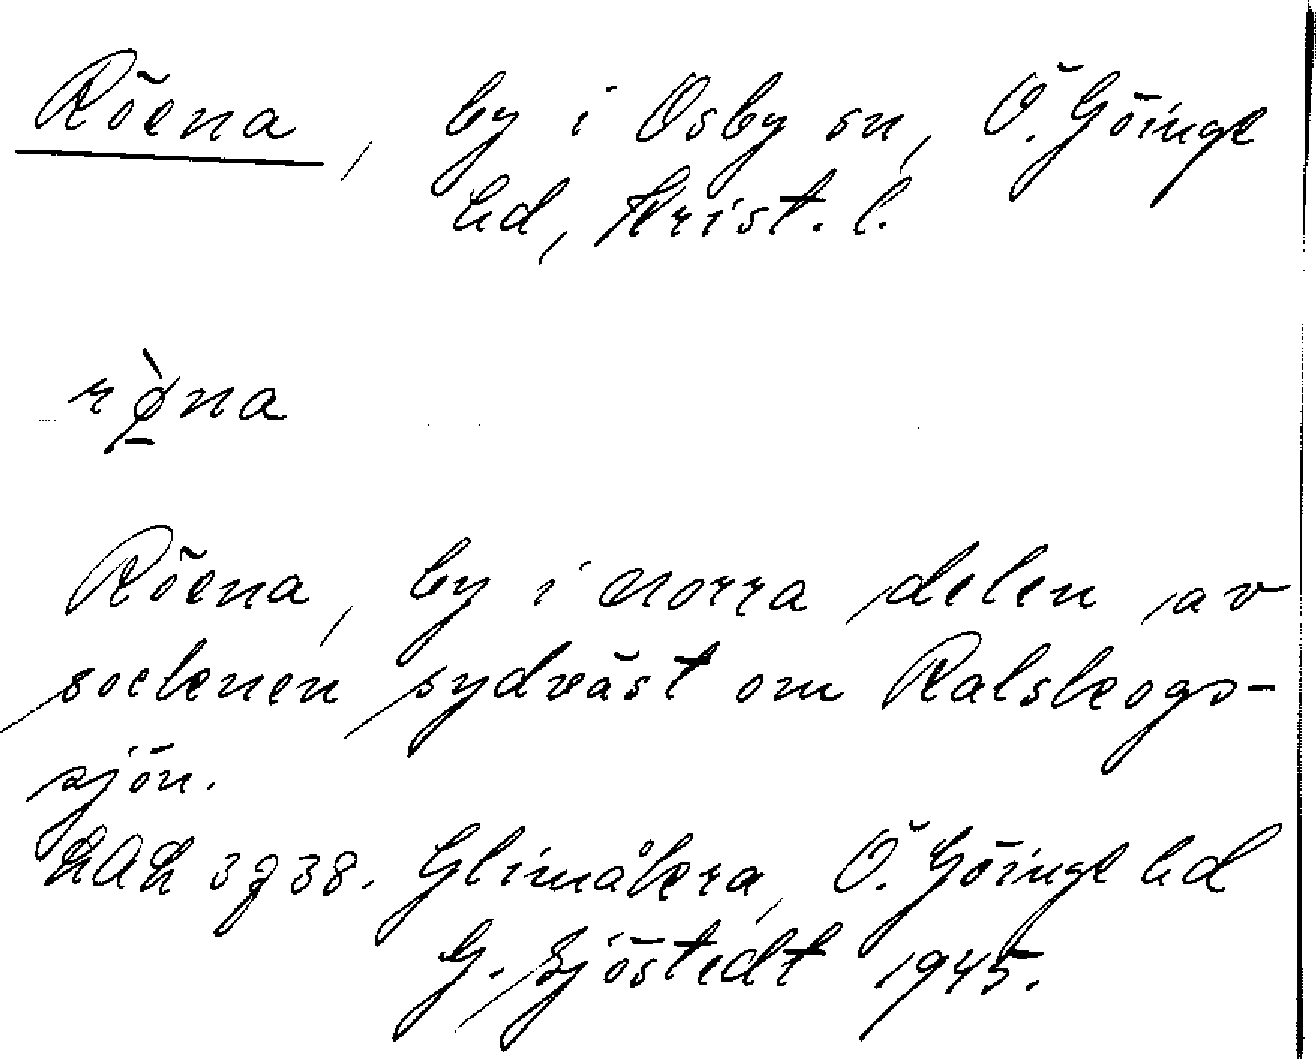 Röena, by i Osby sn, Ö. Göinge
hd, Krist. l.
rø̱̀na
Röena, by i norra delen av
socknen sydväst om Kalskogs-
sjön.
LAL 3738. Glimåkra, Ö. Göinge hd
G. Sjöstedt 1945.